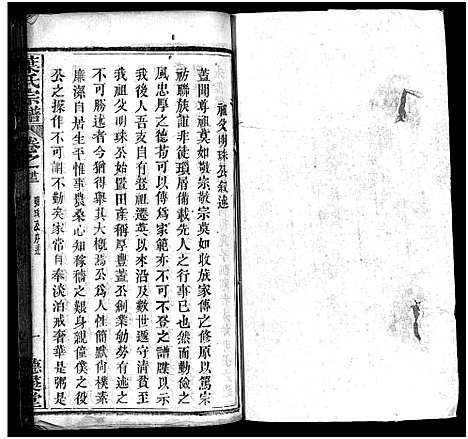 祖父明珠公叙述
蓋聞尊祖莫如敬宗敬宗莫如收族家傳之修原以篤宗
祊聯族誼非徒瑣屑備載先人之行事已也然而勤儉之
風忠厚之德苟可爲家範亦不可不登之譜牒以示
我祖父明珠公自有登祖遷英以來沿及數世遞守清貧至
我祖父公始置田產稱厚豐蓋公創業劬勞有述之
不可勝述者今猶得舉其大槪焉公爲人性簡默尚樸素
廉潔自居生平惟事農桑心知稼穡之艱身親僮僕之役
公之操作不可謂不勤矣家常自奉淡泊戒奢華是粥是
葉氏宗譜
卷之
明珠公序述
一